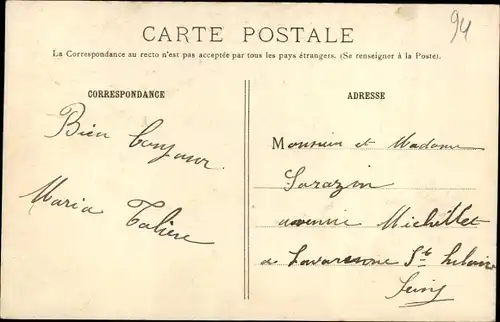 CARTE POSTALE
94
La Correspondance au recto n'est pas acceptée par tous les pays étrangers. (Se renseigner à la Poste).
CORRESPONDANCE
Bien Bonjour
Maria
ADRESSE
Monsieur et Madame
Sarazin
avenue Michelet
de St Hilaire